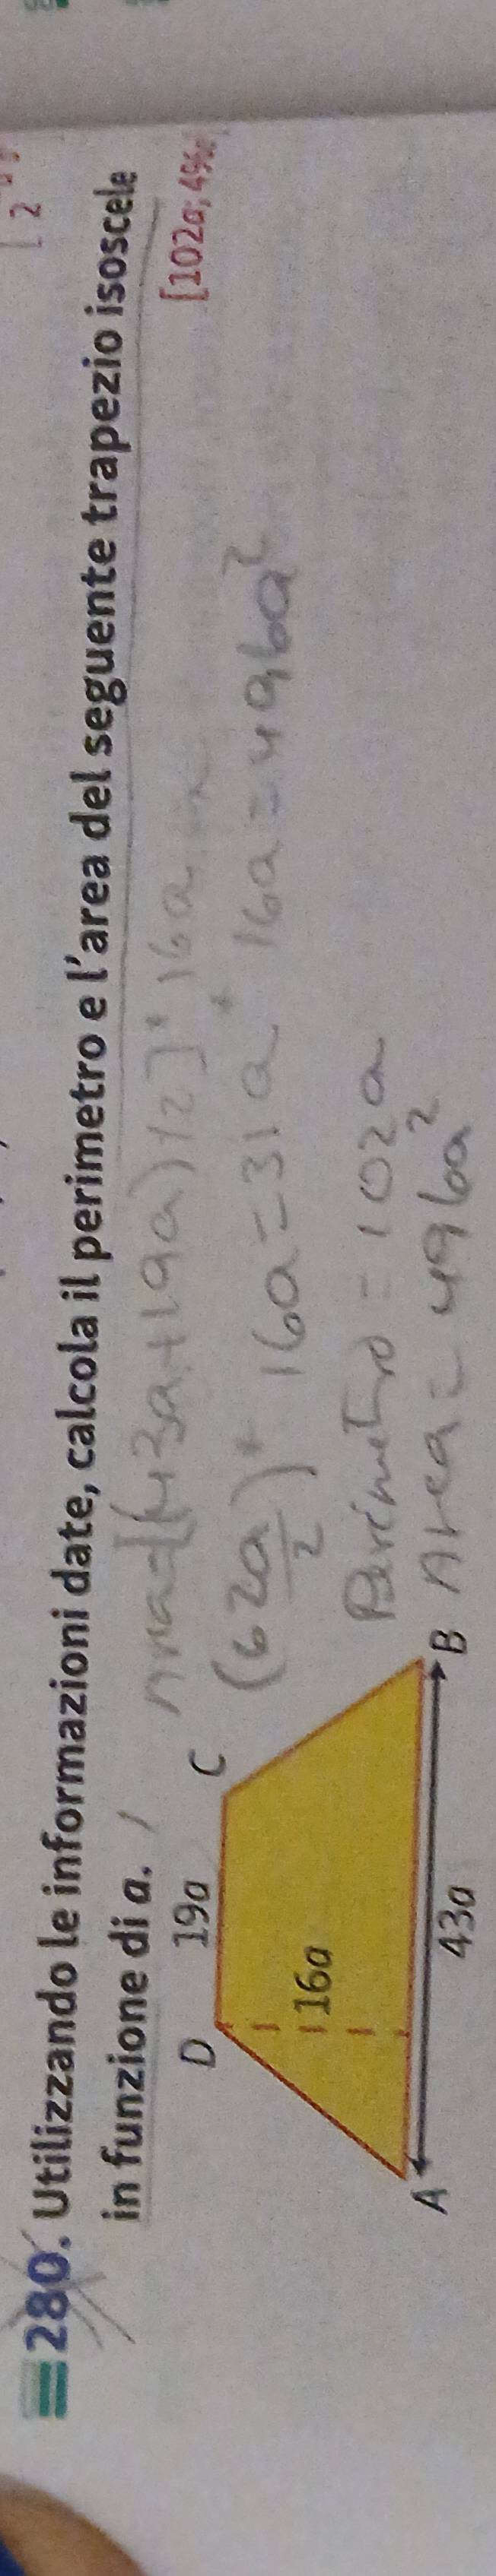 280. Utilizzando le informazioni date, calcola il perimetro e l'area del seguente trapezio isoscele
in funzione di a.
[102a; 496a
D 19a C
16a
A B
43a
[(43a+19a)/2]·16a
(62a/2)· 16a=31a·16a=496a²
Perimetro=102a
Area=496a²
2